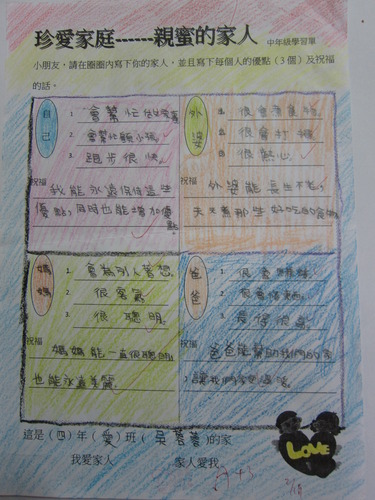 珍愛家庭------親蜜的家人 中年級學習單
小朋友，請在圈圈內寫下你的家人，並且寫下每個人的優點（3個）及祝福
的話。
自己
1. 會幫忙做家事
2. 會幫忙顧小孩
3. 跑步很快
祝福
我能永遠保持這些
優點，同時也能增加優點
外婆
很會煮東西
很會打掃
很熱心
祝福 外婆能長生不老
天天煮那些好吃的
媽媽
1. 會為別人著想
2. 很客氣
3. 很聰明
祝福
媽媽能一直很聰明
也能永遠美麗
爸爸
1.
2.
3.
祝福
爸爸能幫助我們的家
讓我們家
這是（四）年（愛）班（吳蓓蓓）的家
我愛家人 家人愛我
LOVE